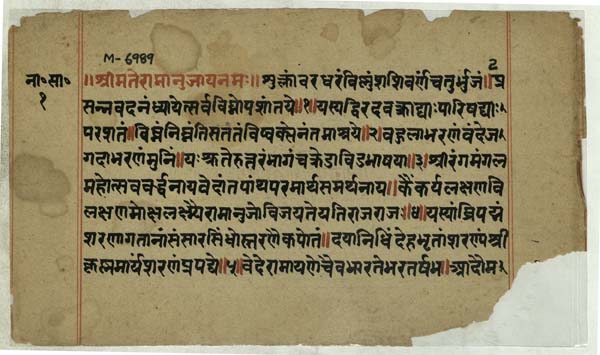 M-6989
2
ना॰सा॰
१
॥श्रीमतेरामानुजायनमः॥शुक्लांवरधरंविष्णुंशशिवर्णंचतुर्भुजं॥प्र
सन्नवदनंध्यायेत्सर्वविघ्नोपशांतये॥१॥यस्यद्विरदवक्त्राद्याःपारिषद्याः
परशतं॥विघ्नंनिघ्नंतिसततंविष्वक्सेनंतमाश्रये॥२॥वकुलाभरणंवंदेज
गदाभरणंमुनिं॥यःश्रुतेरुत्तरंभागंचक्रेद्राविडभाषया॥३॥श्रीरंगमंगल
महोत्सववर्द्धनायवेदांतपांथपरमार्थसमर्थनाय॥कैंकर्यलक्षणवि
लक्षणमोक्षलक्ष्म्यैरामानुजोविजयतेयतिराजराजः॥४॥यस्यांघ्रिपद्मं
शरणागतानांसंसारसिंधोत्तरणैकपोतं॥दयानिधिंदेहभृतांशरण्यंश्री
कृष्णमार्यंशरणंप्रपद्ये॥५॥वेदेरामायणेचैवभारतेभरतर्षभ॥आदौम